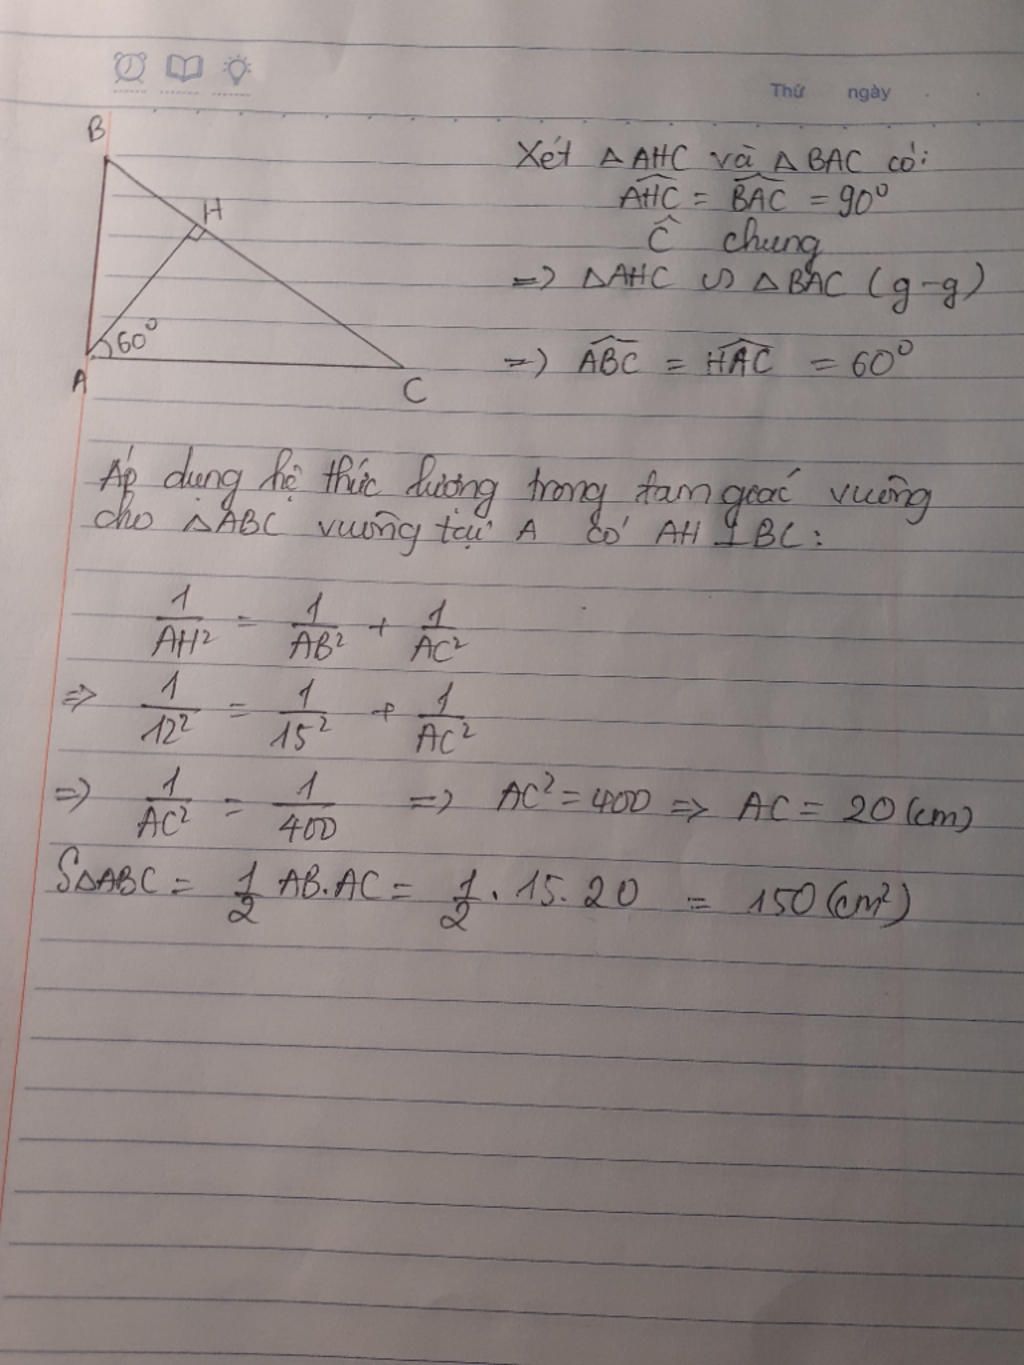 Thứ ngày
B
H
60⁰
A
C
Xét △AHC và △BAC có:
\widehat{AHC} = \widehat{BAC} = 90⁰
Ĉ chung
=> △AHC ∽ △BAC (g-g)
=> \widehat{ABC} = \widehat{HAC} = 60⁰
Áp dụng hệ thức lượng trong tam giác vuông
cho △ABC vuông tại A có AH ⊥ BC:
1/AH² = 1/AB² + 1/AC²
=> 1/12² = 1/15² + 1/AC²
=> 1/AC² = 1/400 => AC² = 400 => AC = 20 (cm)
S△ABC = 1/2 AB.AC = 1/2 . 15. 20 = 150 (cm²)